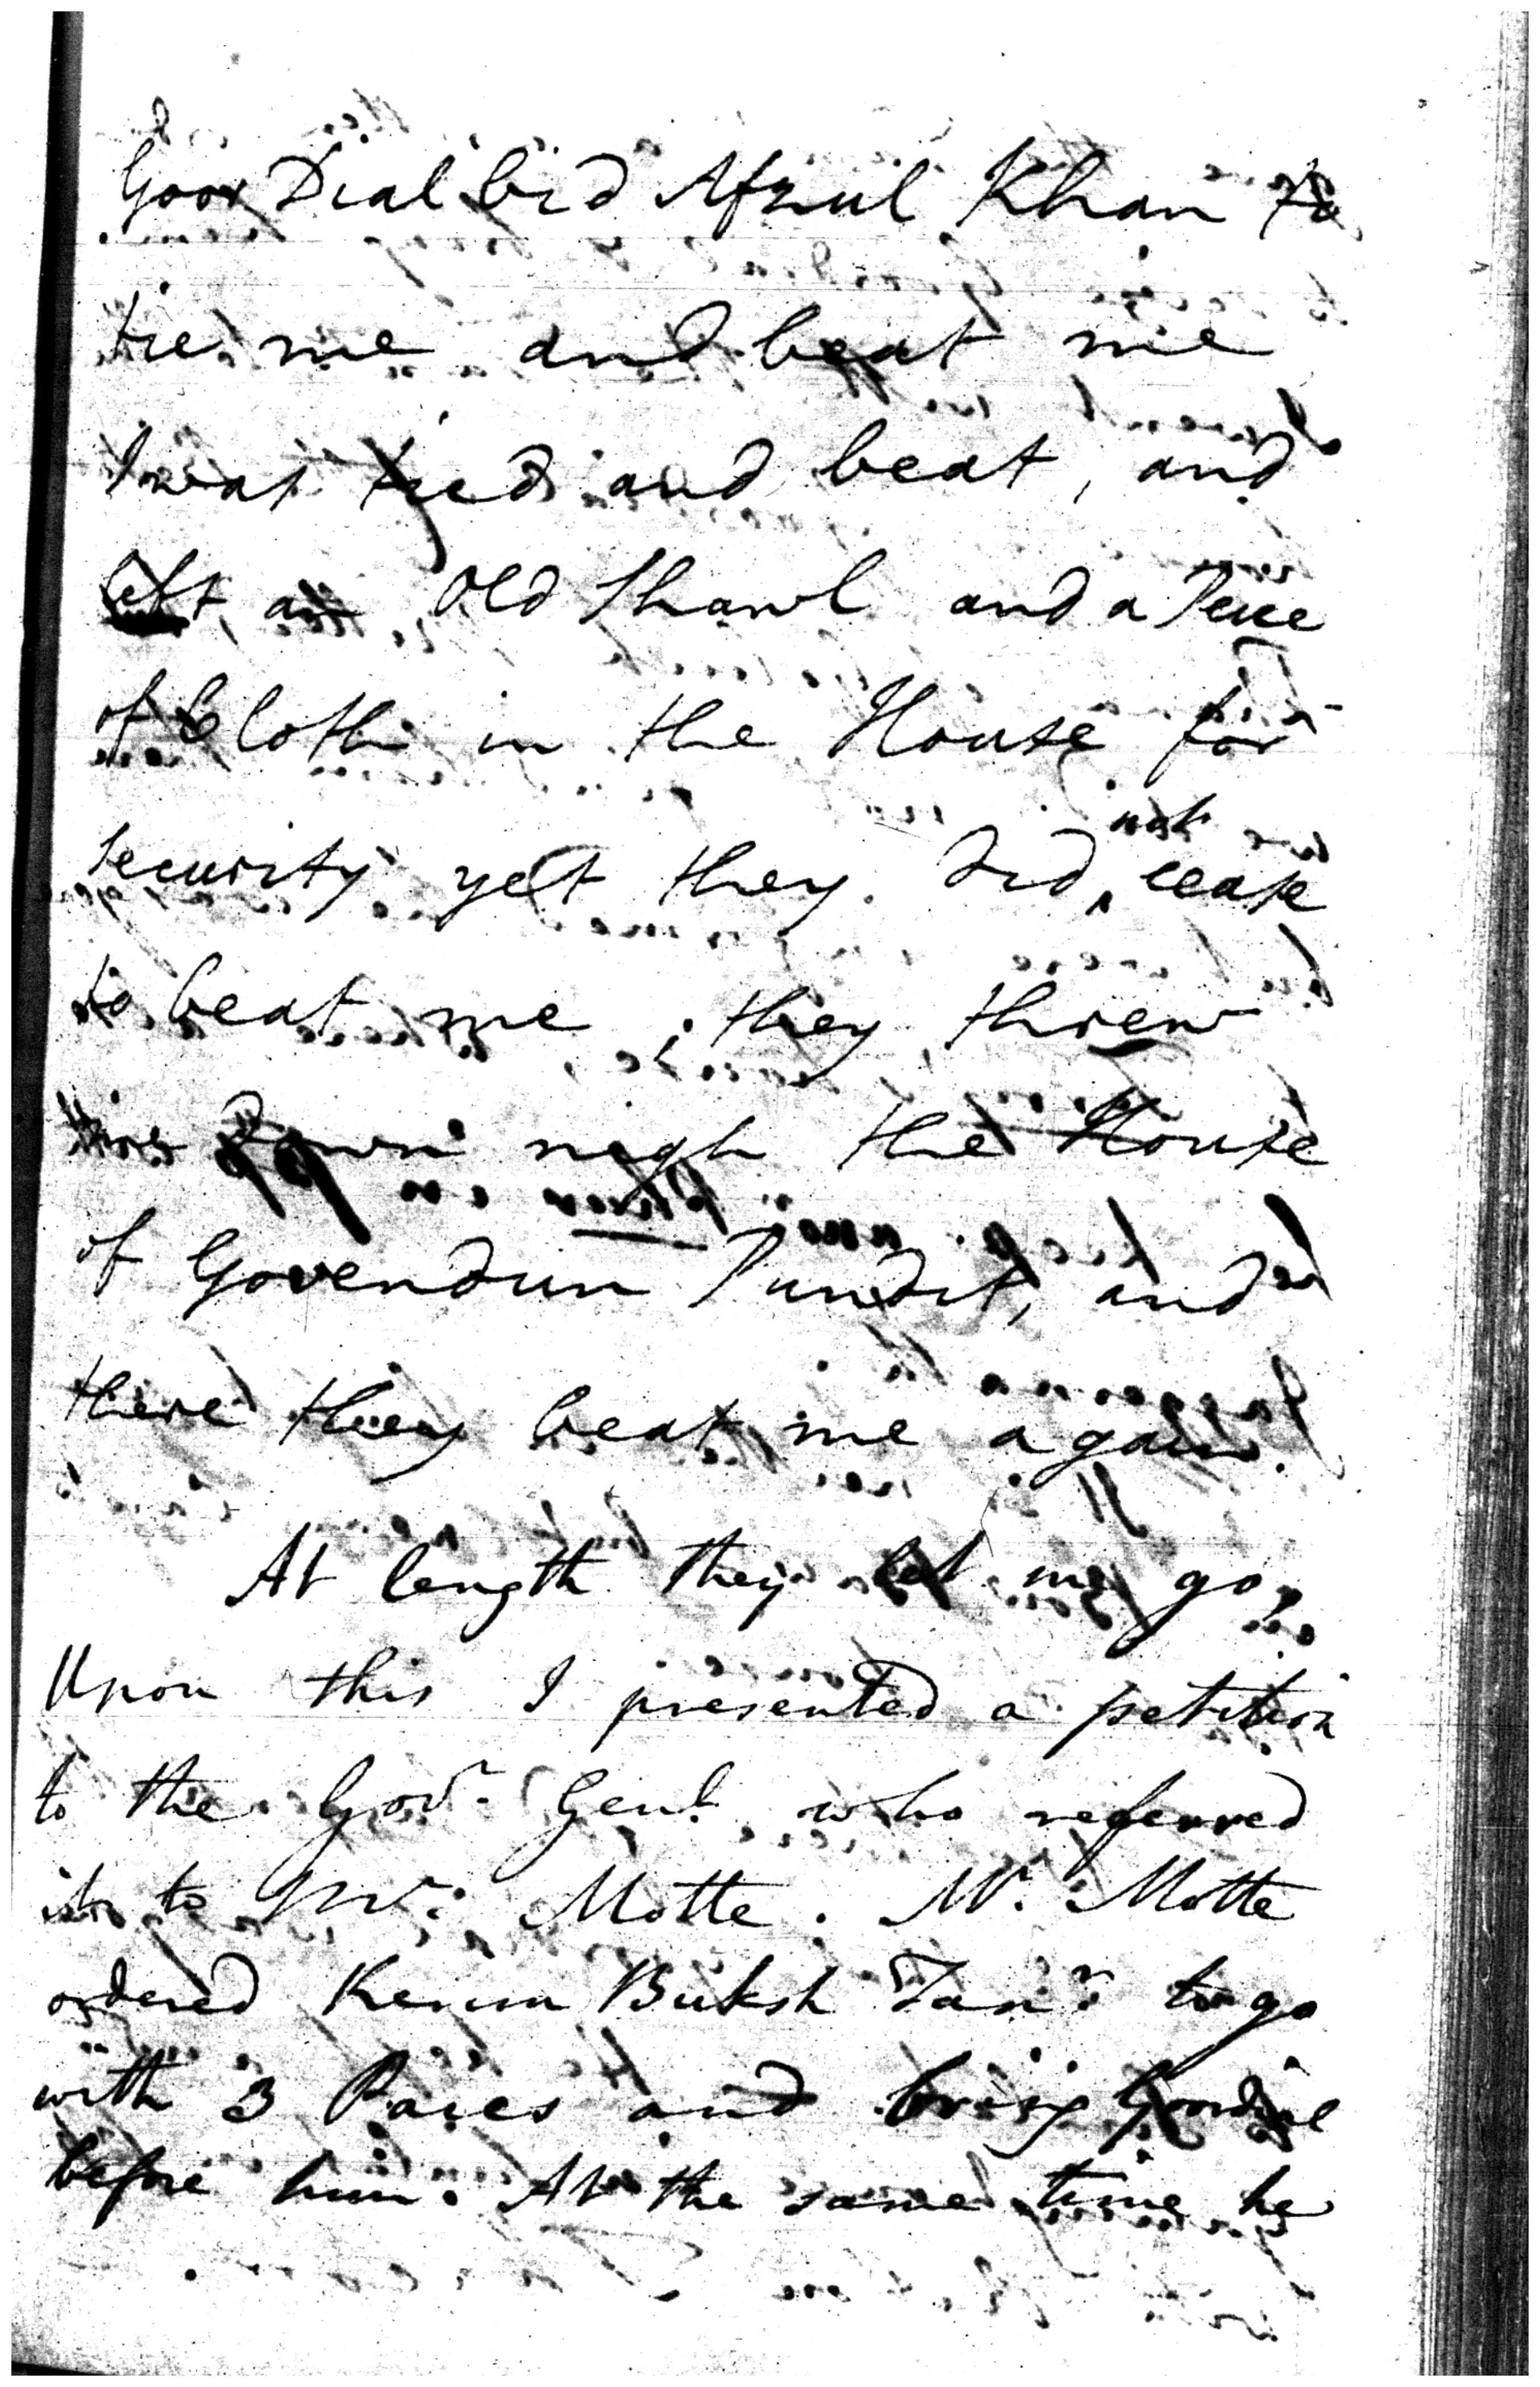 Goor Dial bid Afzul Khan to
tie me and beat me
I was tied and beat, and
left an Old Shawl and a Peice
of Cloth in the House for
security yet they did not cease
to beat me, they threw
down nigh the House
of Govendun Pundit, and
there they beat me again.
At length they let me go,
Upon this I presented a petition
to the Govr. Genl. who referred
it to Mr. Motte. Mr. Motte
ordered Kerim Buksh to go
with 3 and bring Goordial
before him. At the same time he